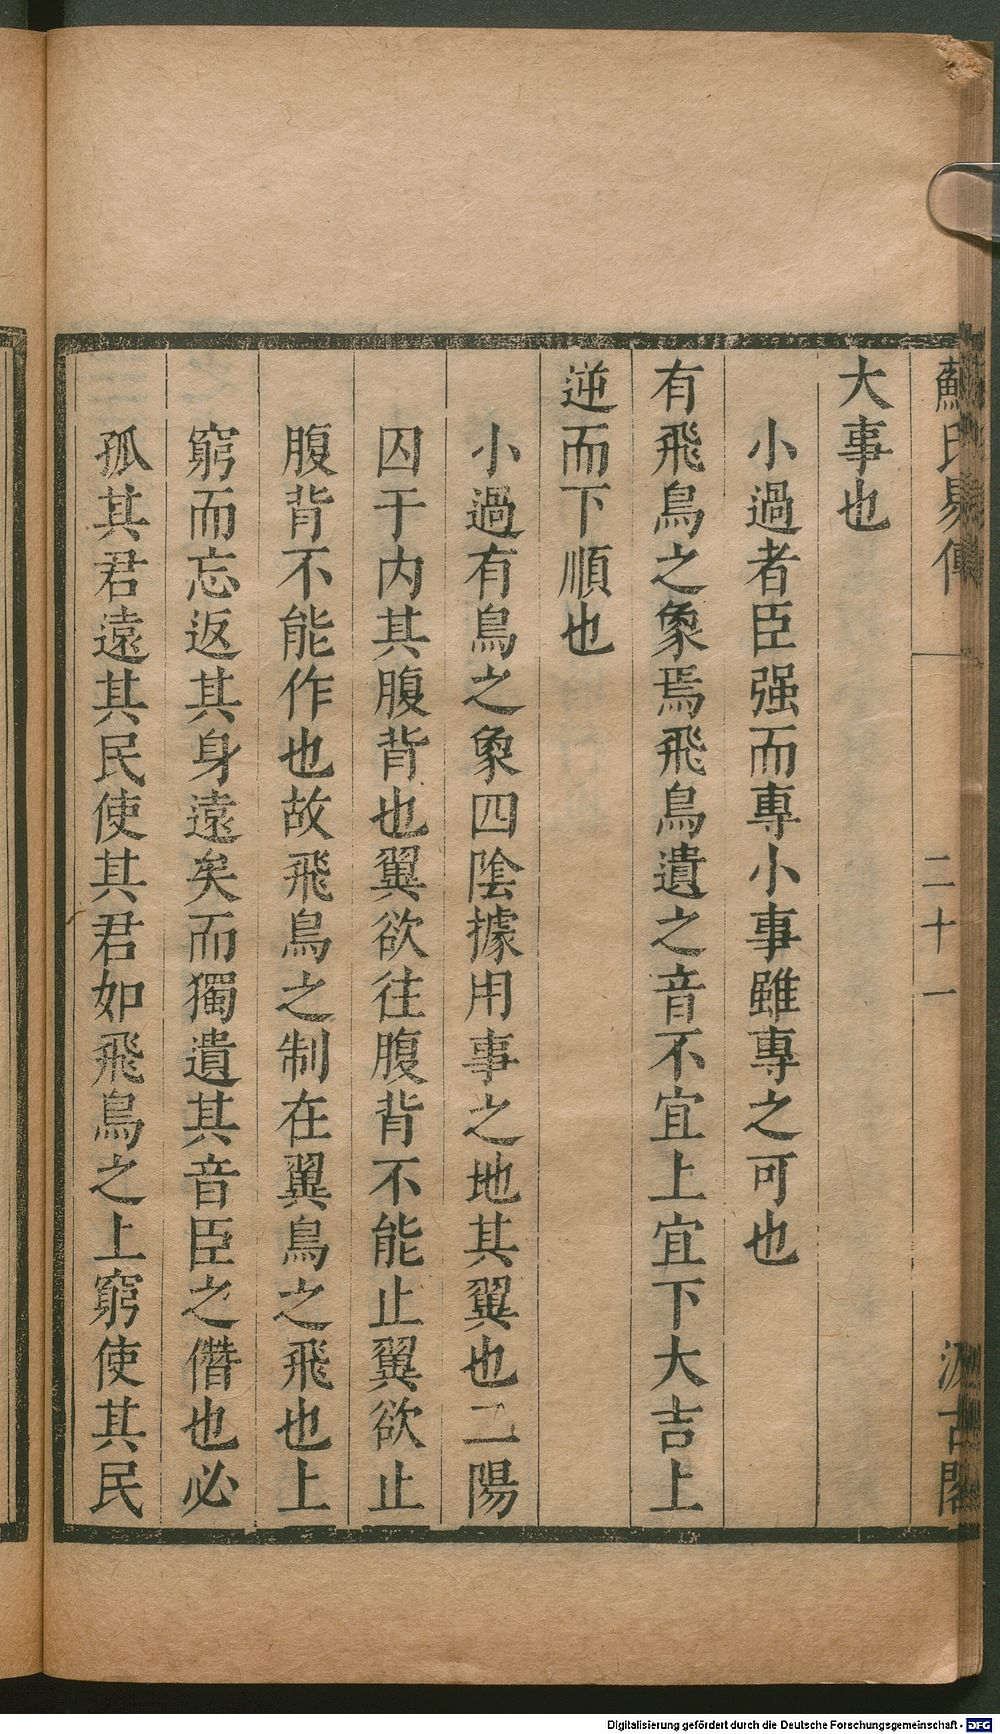 蘇氏易傳 二十一 汲古閣
大事也
小過者臣强而專小事雖專之可也
有飛鳥之象焉飛鳥遺之音不宜上宜下大吉上
逆而下順也
小過有鳥之象四陰據用事之地其翼也二陽
囚于内其腹背也翼欲往腹背不能止翼欲止
腹背不能作也故飛鳥之制在翼鳥之飛也上
窮而忘返其身遠矣而獨遺其音臣之僭也必
孤其君遠其民使其君如飛鳥之上窮使其民
Digitalisierung gefördert durch die Deutsche Forschungsgemeinschaft - DFG